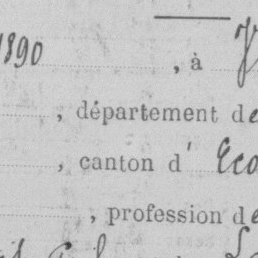 1890 , à
, département de
, canton d' Eco
, profession de